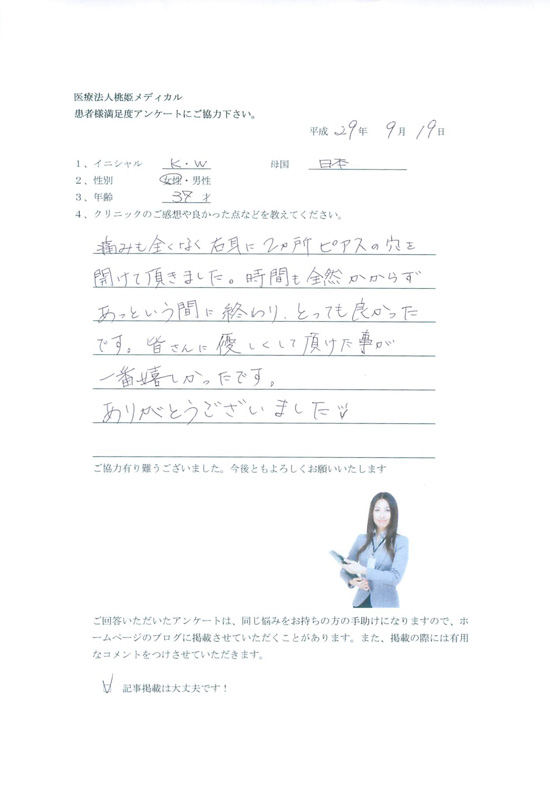 医療法人桃姫メディカル
患者様満足度アンケートにご協力下さい。
平成 29年 9月 19日
1、イニシャル K・W 母国 日本
2、性別 女性・男性
3、年齢 37才
4、クリニックのご感想や良かった点などを教えてください。
痛みも全くなく右耳に2ヵ所ピアスの穴を
開けて頂きました。時間も全然かからず
あっという間に終わり、とっても良かった
です。皆さんに優しくして頂けた事が
一番嬉しかったです。
ありがとうございました
ご協力有り難うございました。今後ともよろしくお願いいたします
ご回答いただいたアンケートは、同じ悩みをお持ちの方の手助けになりますので、ホ
ームページのブログに掲載させていただくことがあります。また、掲載の際には有用
なコメントをつけさせていただきます。
記事掲載は大丈夫です！